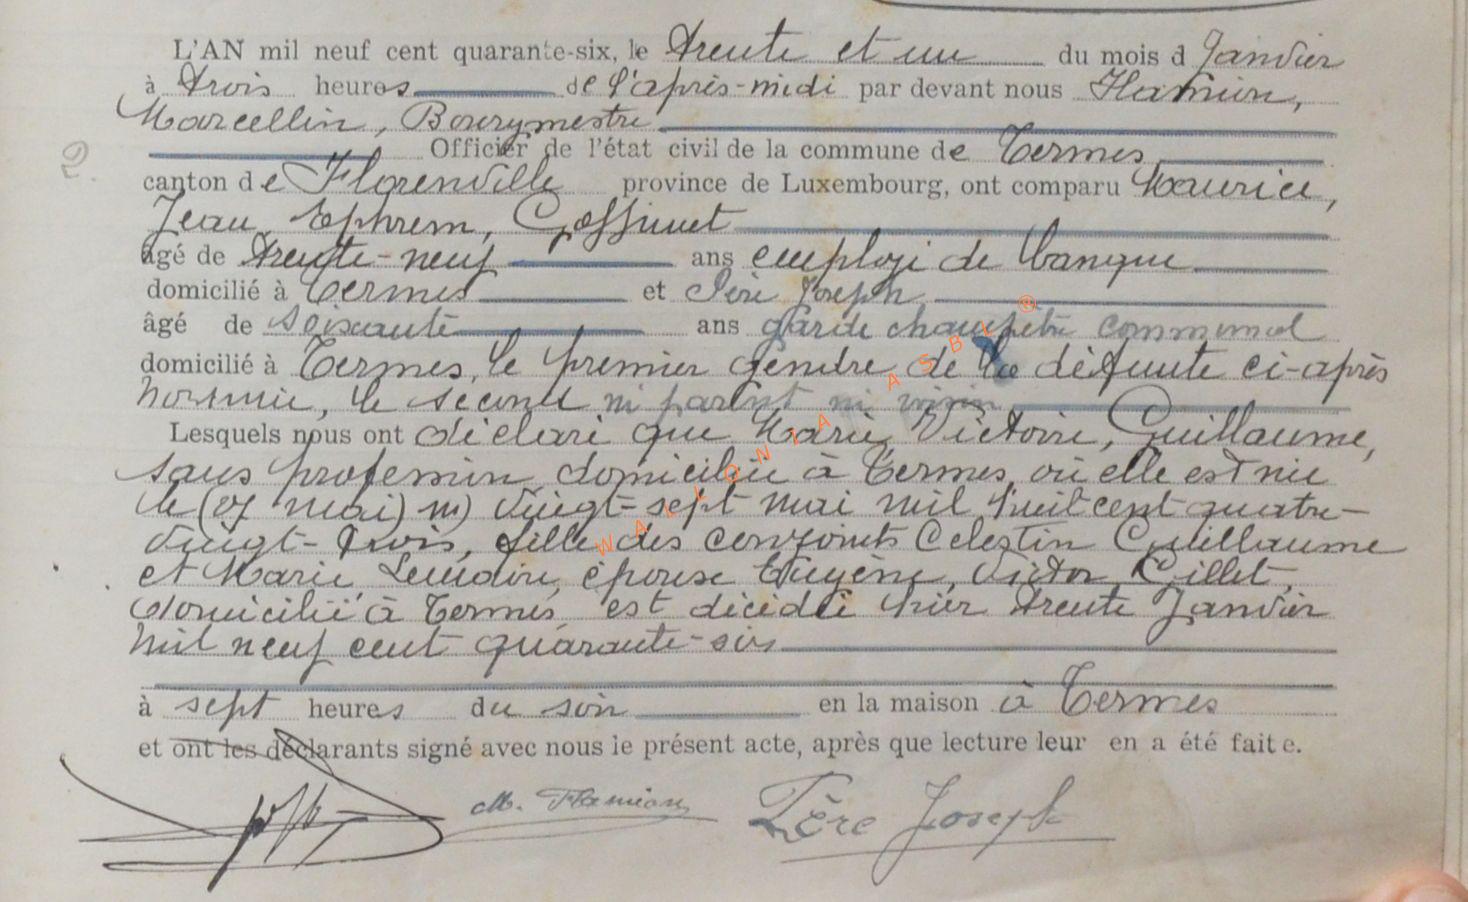 L'AN mil neuf cent quarante-six, le trente et un du mois d Janvier
à trois heures de l'après-midi par devant nous Flamion,
Marcellin, Bourgmestre
2.
Officier de l'état civil de la commune de Termes
canton de Florenville province de Luxembourg, ont comparu Maurice,
Jean, Ephrem, Goffinet
âgé de trente-neuf ans employé de banque
domicilié à Termes et Père Joseph
âgé de soixante ans garde champêtre communal
domicilié à Termes, le premier gendre de la défunte ci-après
nommée, le second ni parent ni voisin
Lesquels nous ont déclaré que Marie, Victoire, Guillaume,
sans profession domiciliée à Termes, où elle est née
le (27 mai) vingt-sept mai mil huit cent quatre-
vingt-trois, fille des conjoints Celestin Guillaume
et Marie, épouse Eugène, Victor, Gillet,
domicilié à Termes, est décédée hier trente Janvier
mil neuf cent quarante-six
à sept heures du soir en la maison à Termes
et ont les déclarants signé avec nous le présent acte, après que lecture leur en a été faite.
M. Flamion
Père Joseph
WALLONIA ASBL ®